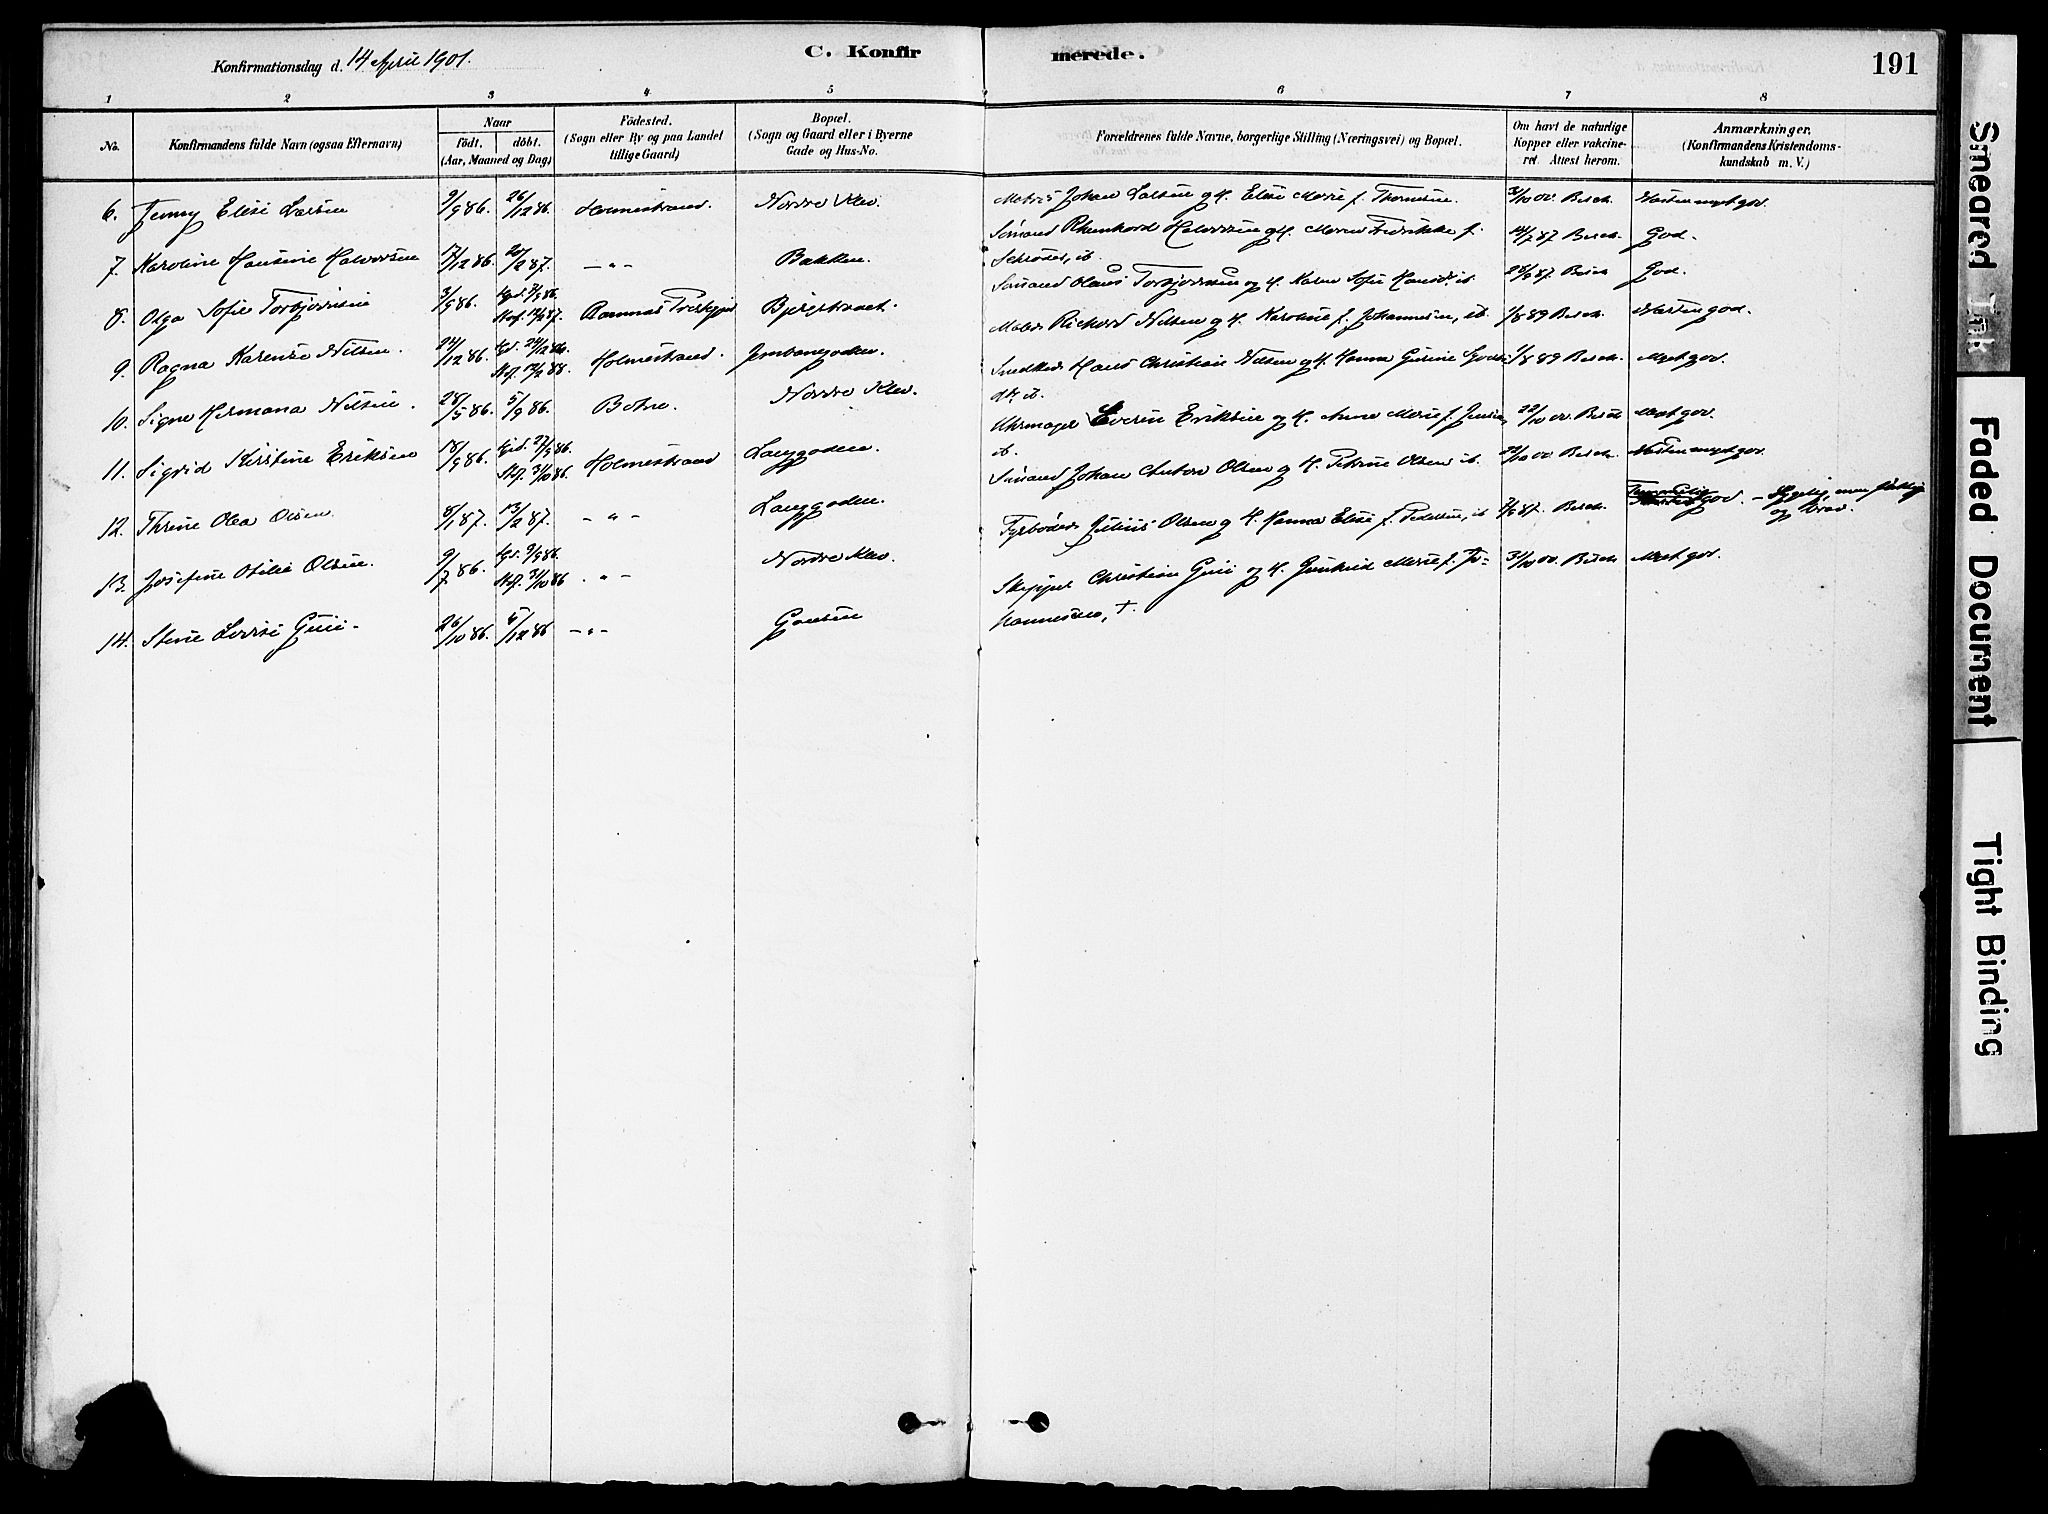 Konfirmationsdag d. 14 April 1901.
C. Konfirmerede.
191
1 2 3 4 5 6 7 8
No.
Konfirmandens fulde Navn (ogsaa Efternavn)
Naar
födt. döbt.
(Aar, Maaned og Dag)
Födested.
(Sogn eller By og paa Landet
tillige Gaard)
Bopæl.
(Sogn og Gaard eller i Byerne
Gade og Hus-No.
Forældrenes fulde Navne, borgerlige Stilling (Næringsvei) og Bopæl.
Om havt de naturlige
Kopper eller vakcine-
ret. Attest herom.
Anmærkninger.
(Konfirmandens Kristendoms-
kundskab m. V.)
6. Jenny Elise Larsen 9/9 86. 26/12 86. Holmestrand. Nordre Klev. Johan Larsen og H. Elise Marie f. Thomesen. 3/10 00. Besch. Næsten meget god.
7. Karoline Hansine Halvorsen 7/12 86. 20/2 87. — " — Bakken. Sömand Rhinhard Halvorsen og H. Maren Fredrikke f.
Schröder, ib. 14/7 87 Besch. God.
8. Olga Sofie Torbjörnsen 3/9 86. Ramnæs Præstegjeld Bjergstrædet. Sömand Olaus Torbjörnsen og H. Karen Sofie Hansdr. ib. Besch. God.
9. Ragna Karense Nilsen. 24/12 86. Holmestrand. Jernbanegaden. Maler Richard Nilsen og H. Karoline f. Johannesen, ib. 1/8 89 Besch. Næsten god.
10. Signe Hermana Nilsen. 28/5 86. 5/9 86. Botne. Nordre Klev. Snedker Hans Christian Nilsen og H. Hanna Gurine
dtr. ib. 1/8 89 Besch. Meget god.
11. Sigvid Kirstine Eriksen 18/9 86. Holmestrand Langgaden. Uhrmager Everin Eriksen og H. Anne Marie f. Jensen,
ib. 22/10 00. Besch. Meget god.
12. Thrine Olea Olsen 8/1 87. 13/2 87. — " — Langgaden. Sömand Johan Anton Olsen og H. Petrine Olsen ib. 22/10 00. Besch. Næsten meget god.
13. Josefine Otilie Olsen. 9/7 86. — " — Nordre Klev. Fyrböder Julius Olsen og H. Hanna Elise f. Pedersen, ib. Besch. god. — Sygelig, men flittig
og brav.
14. Stine Lovise Gusi. 26/10 86. 5/12 86 — " — Gausen Skipper Christian Gusi og H. Gunhild Marie f. Jo-
hannesen, +. 31/10 00. Besch. Meget god.
Smeared Ink
Faded Document
Tight Binding